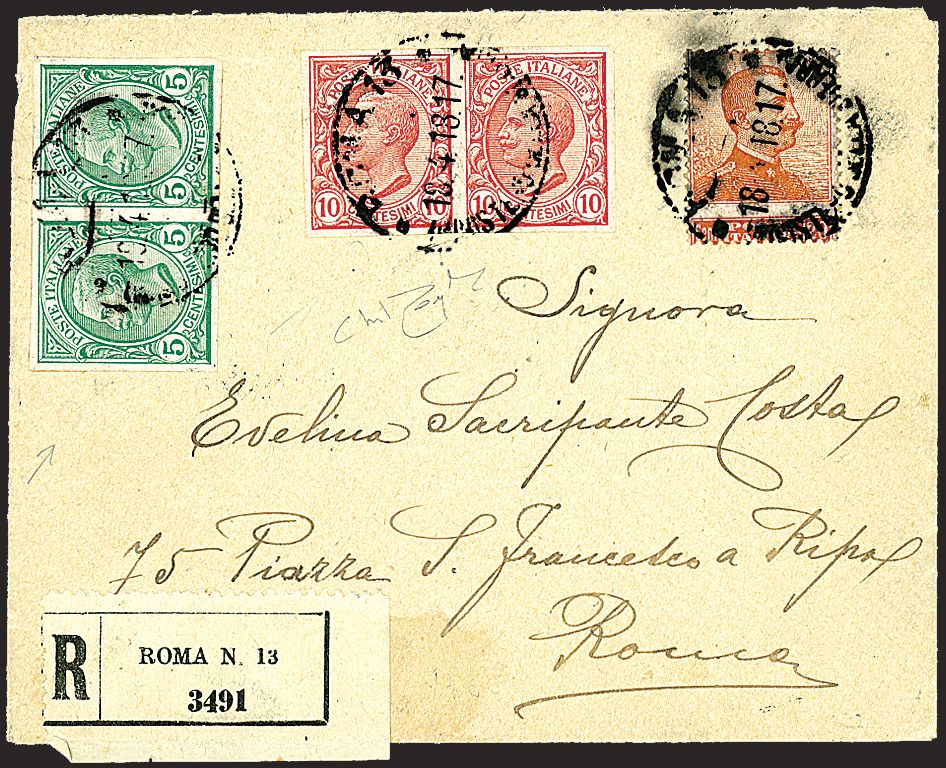 POSTE ITALIANE
5 CENTESIMI 5
POSTE ITALIANE
5 CENTESIMI 5
POSTE ITALIANE
10 CENTESIMI 10
POSTE ITALIANE
10 TESIMI 10
18.4.18.17
18 18.17
Signora
Evelina Sacripante Costa
75 Piazza S. Francesco a Ripa
Roma
R
ROMA N. 13
3491